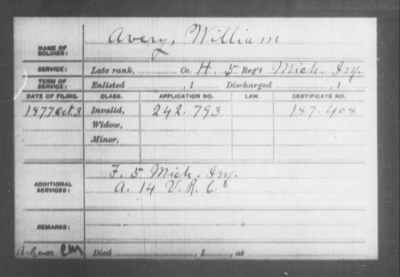 NAME OF SOLDIER: Avery, William
SERVICE: Late rank, Co. H. 5 Reg't Mich. Inf.
TERM OF SERVICE: Enlisted , 1 Discharged , 1
DATE OF FILING. CLASS. APPLICATION NO. LAW. CERTIFICATE NO.
1877 Oct 3 Invalid, 242.793 187.408
Widow,
Minor,
ADDITIONAL SERVICES: F. 5 Mich. Inf.
A. 14 V. R. C.
REMARKS:
Died , 1 , at